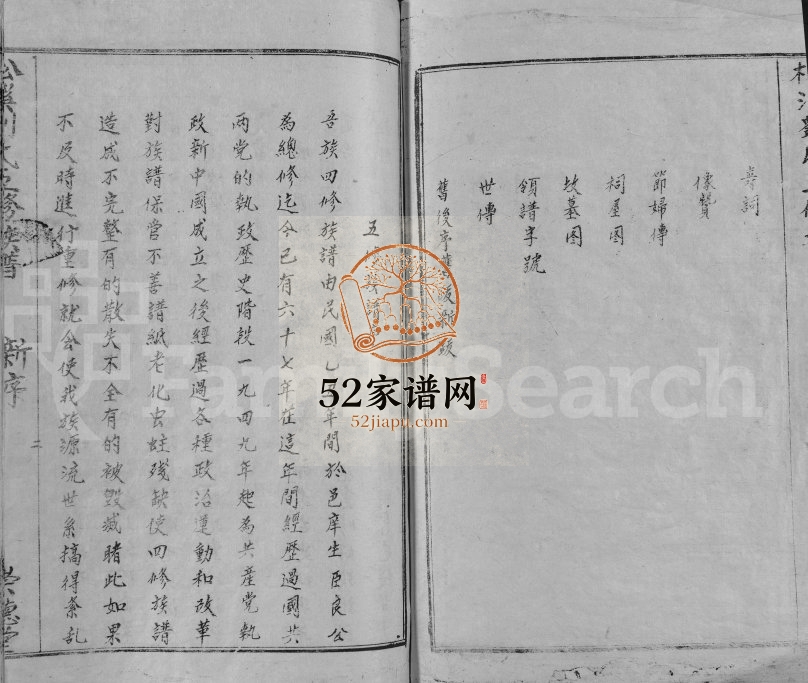 壽詞
像贊
節婦傳
祠屋图
坟墓图
領譜字號
世傳
舊後序
五
吾族四修族譜由民國乙 年間於邑庠生臣良公
為總修迄今已有六十七年在這年間經歷過國共
两党的執政歷史階段一九四九年起為共產党執
政新中國成立之後經歷過各種政治運動和改革
對族譜保管不善譜紙老化虫蛀殘缺使四修族譜
造成不完整有的散失不全有的被毀滅睹此如果
不及時進行重修就会使我族源流世系搞得紊乱
新序
二
崇德堂
FamilySearch
52家谱网
52jiapu.com